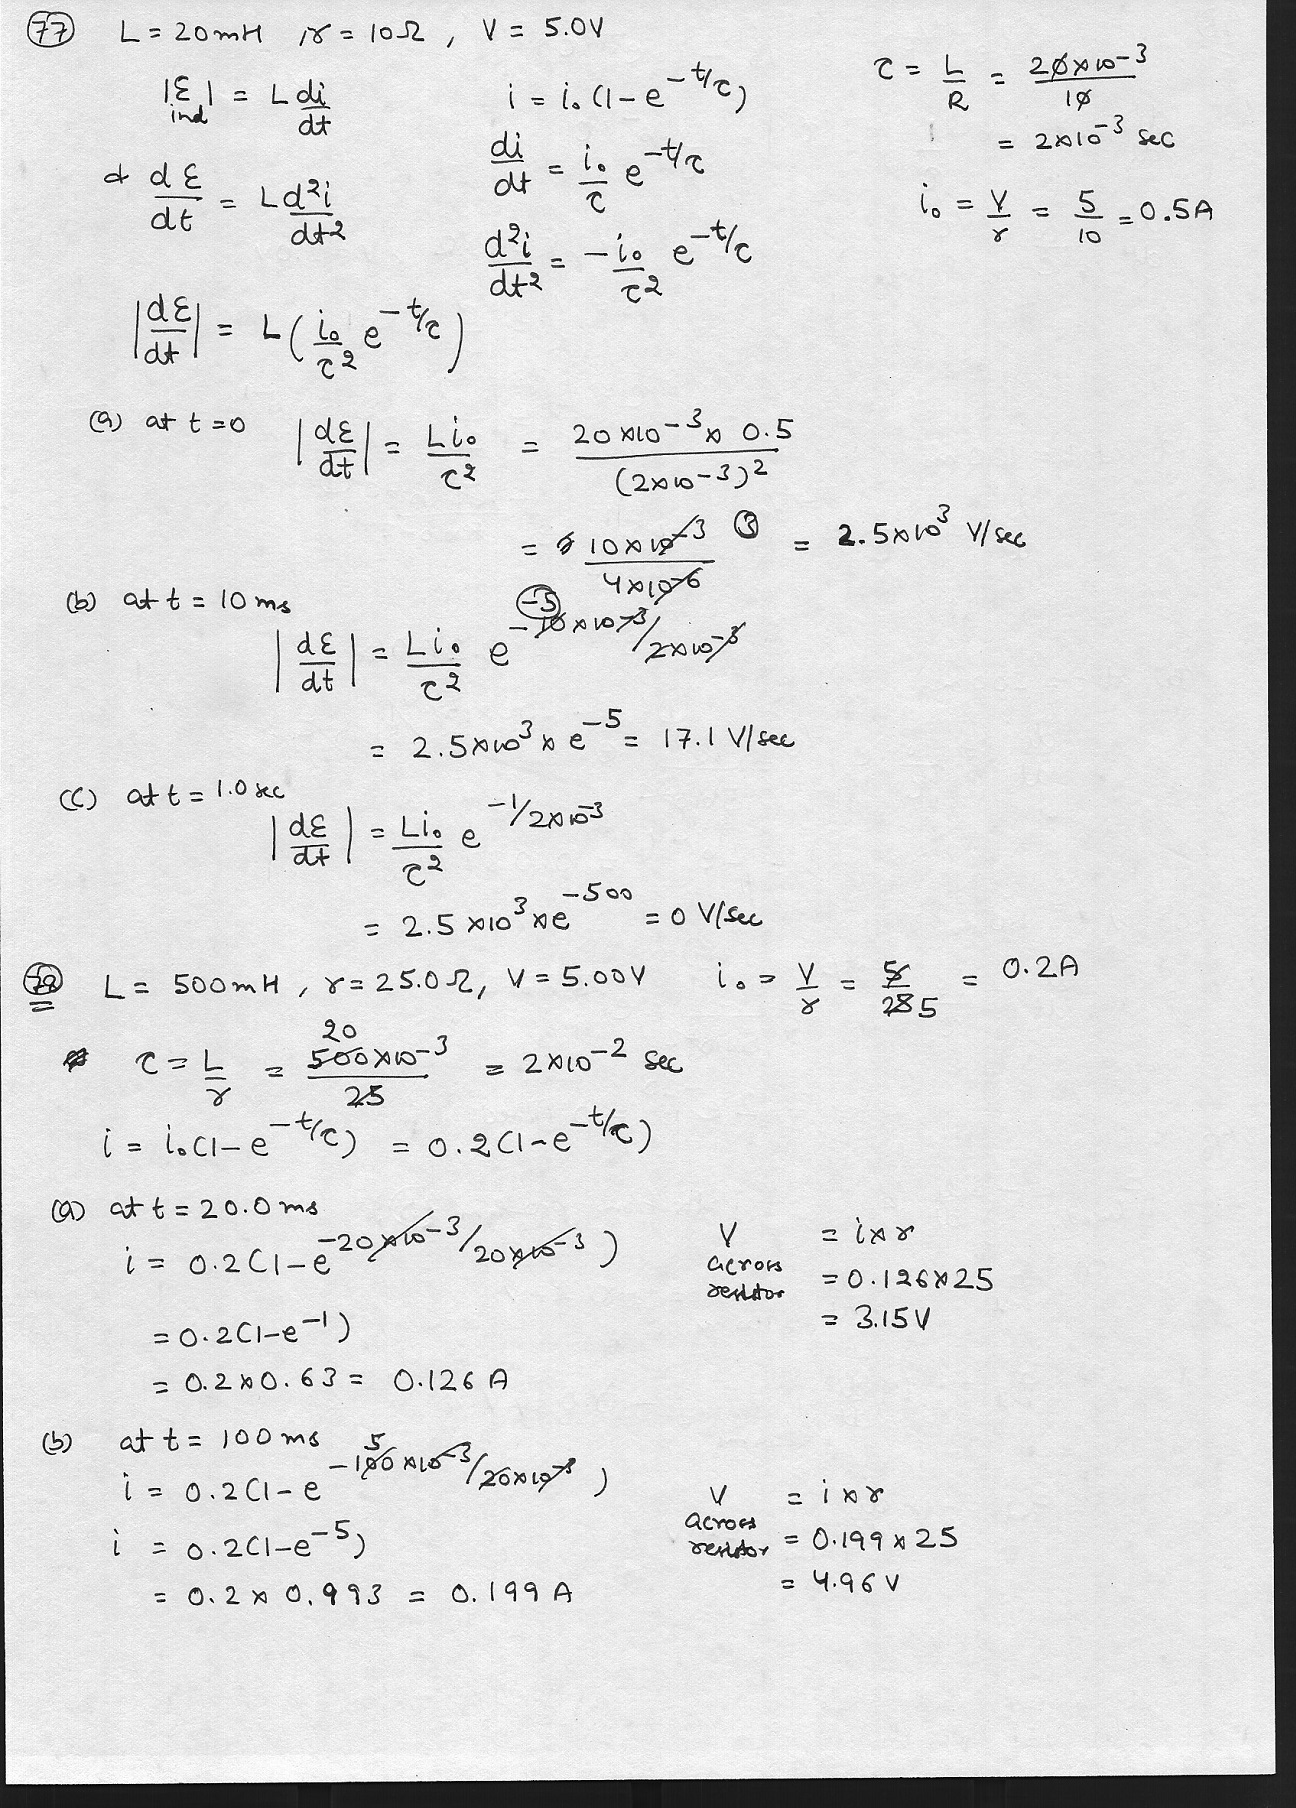 77 L = 20mH , r = 10Ω , V = 5.0V
|ε ind| = L di/dt
i = i₀(1-e^-t/τ)
τ = L/R = 20×10^-3/10
= 2×10^-3 sec
dε/dt = L d²i/dt²
di/dt = i₀/τ e^-t/τ
i₀ = V/r = 5/10 = 0.5A
d²i/dt² = -i₀/τ² e^-t/τ
|dε/dt| = L(i₀/τ² e^-t/τ)
(a) at t=0 |dε/dt| = Li₀/τ² = 20×10^-3 × 0.5/(2×10^-3)²
= 10×10^-3/4×10^-6 3 = 2.5×10^3 V/sec
(b) at t = 10ms
|dε/dt| = Li₀/τ² e^-10×10^-3/2×10^-3 -5
= 2.5×10^3 × e^-5 = 17.1 V/sec
(c) at t = 1.0sec
|dε/dt| = Li₀/τ² e^-1/2×10^-3
= 2.5×10^3×e^-500 = 0 V/sec
78 L = 500mH, r = 25.0Ω, V = 5.00V i₀ = V/r = 5/25 5 = 0.2A
τ = L/r = 20 500×10^-3/25 = 2×10^-2 sec
i = i₀(1-e^-t/τ) = 0.2(1-e^-t/τ)
(a) at t = 20.0ms
i = 0.2(1-e^-20×10^-3/20×10^-3)
= 0.2(1-e^-1)
= 0.2×0.63 = 0.126 A
V across resistor = i×r
= 0.126×25
= 3.15V
(b) at t = 100ms
i = 0.2(1-e^-100×10^-3/20×10^-3) 5
i = 0.2(1-e^-5)
= 0.2 × 0.993 = 0.199 A
V across resistor = i×r
= 0.199×25
= 4.96V